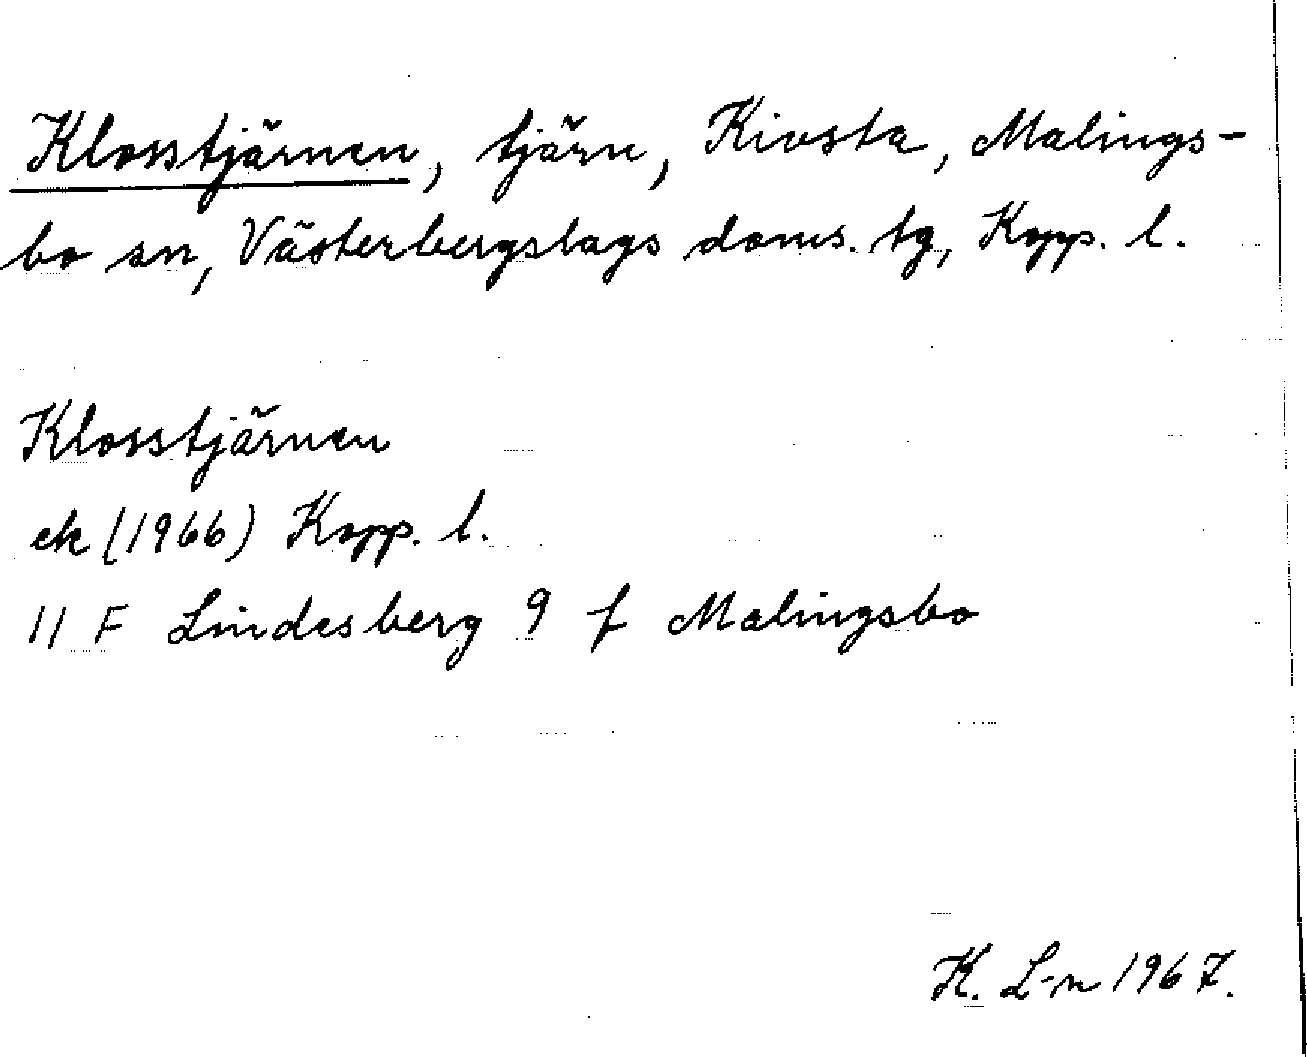 Klosstjärnen, tjärn, Kivsta, Malings-
bo sn, Västerbergslags doms. tg, Kopp. l.
Klosstjärnen
ek (1966) Kopp. l.
11 F Lindesberg 9 f Malingsbo
K. L-n 1967.